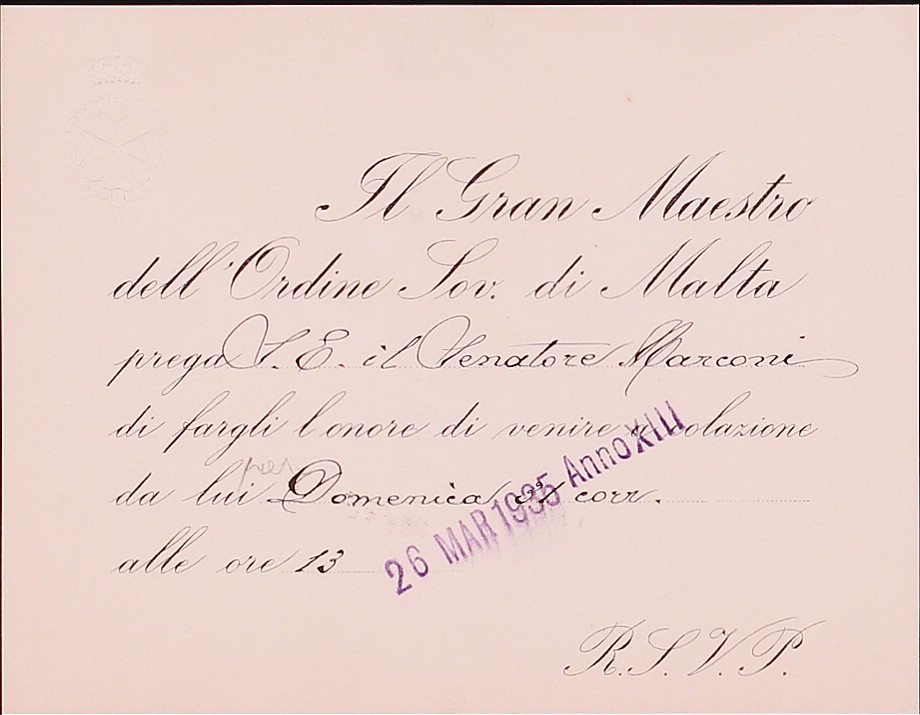 Il Gran Maestro
dell'Ordine Sov. di Malta
prega S. E. il Senatore Marconi
di fargli l'onore di venire a colazione
per
da lui Domenica corr.
alle ore 13
26 MAR 1935 Anno XIII
R.S.V.P.